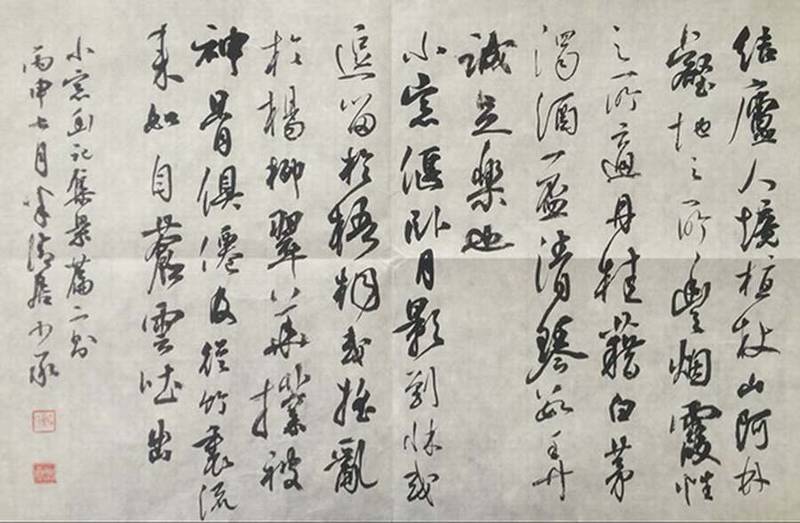 結廬人境植杖山阿林
壑地之所豐烟霞性
之所適丹桂藉白茅
濁酒一盃清琴數弄
誠足樂也
小窓偃卧月影到牀或
逗留於梧桐或摇亂
於楊柳翠華撲被
神骨俱僊及從竹裏流
来如自蒼雲吐出
小窓幽记集景篇二则
丙申七月清居